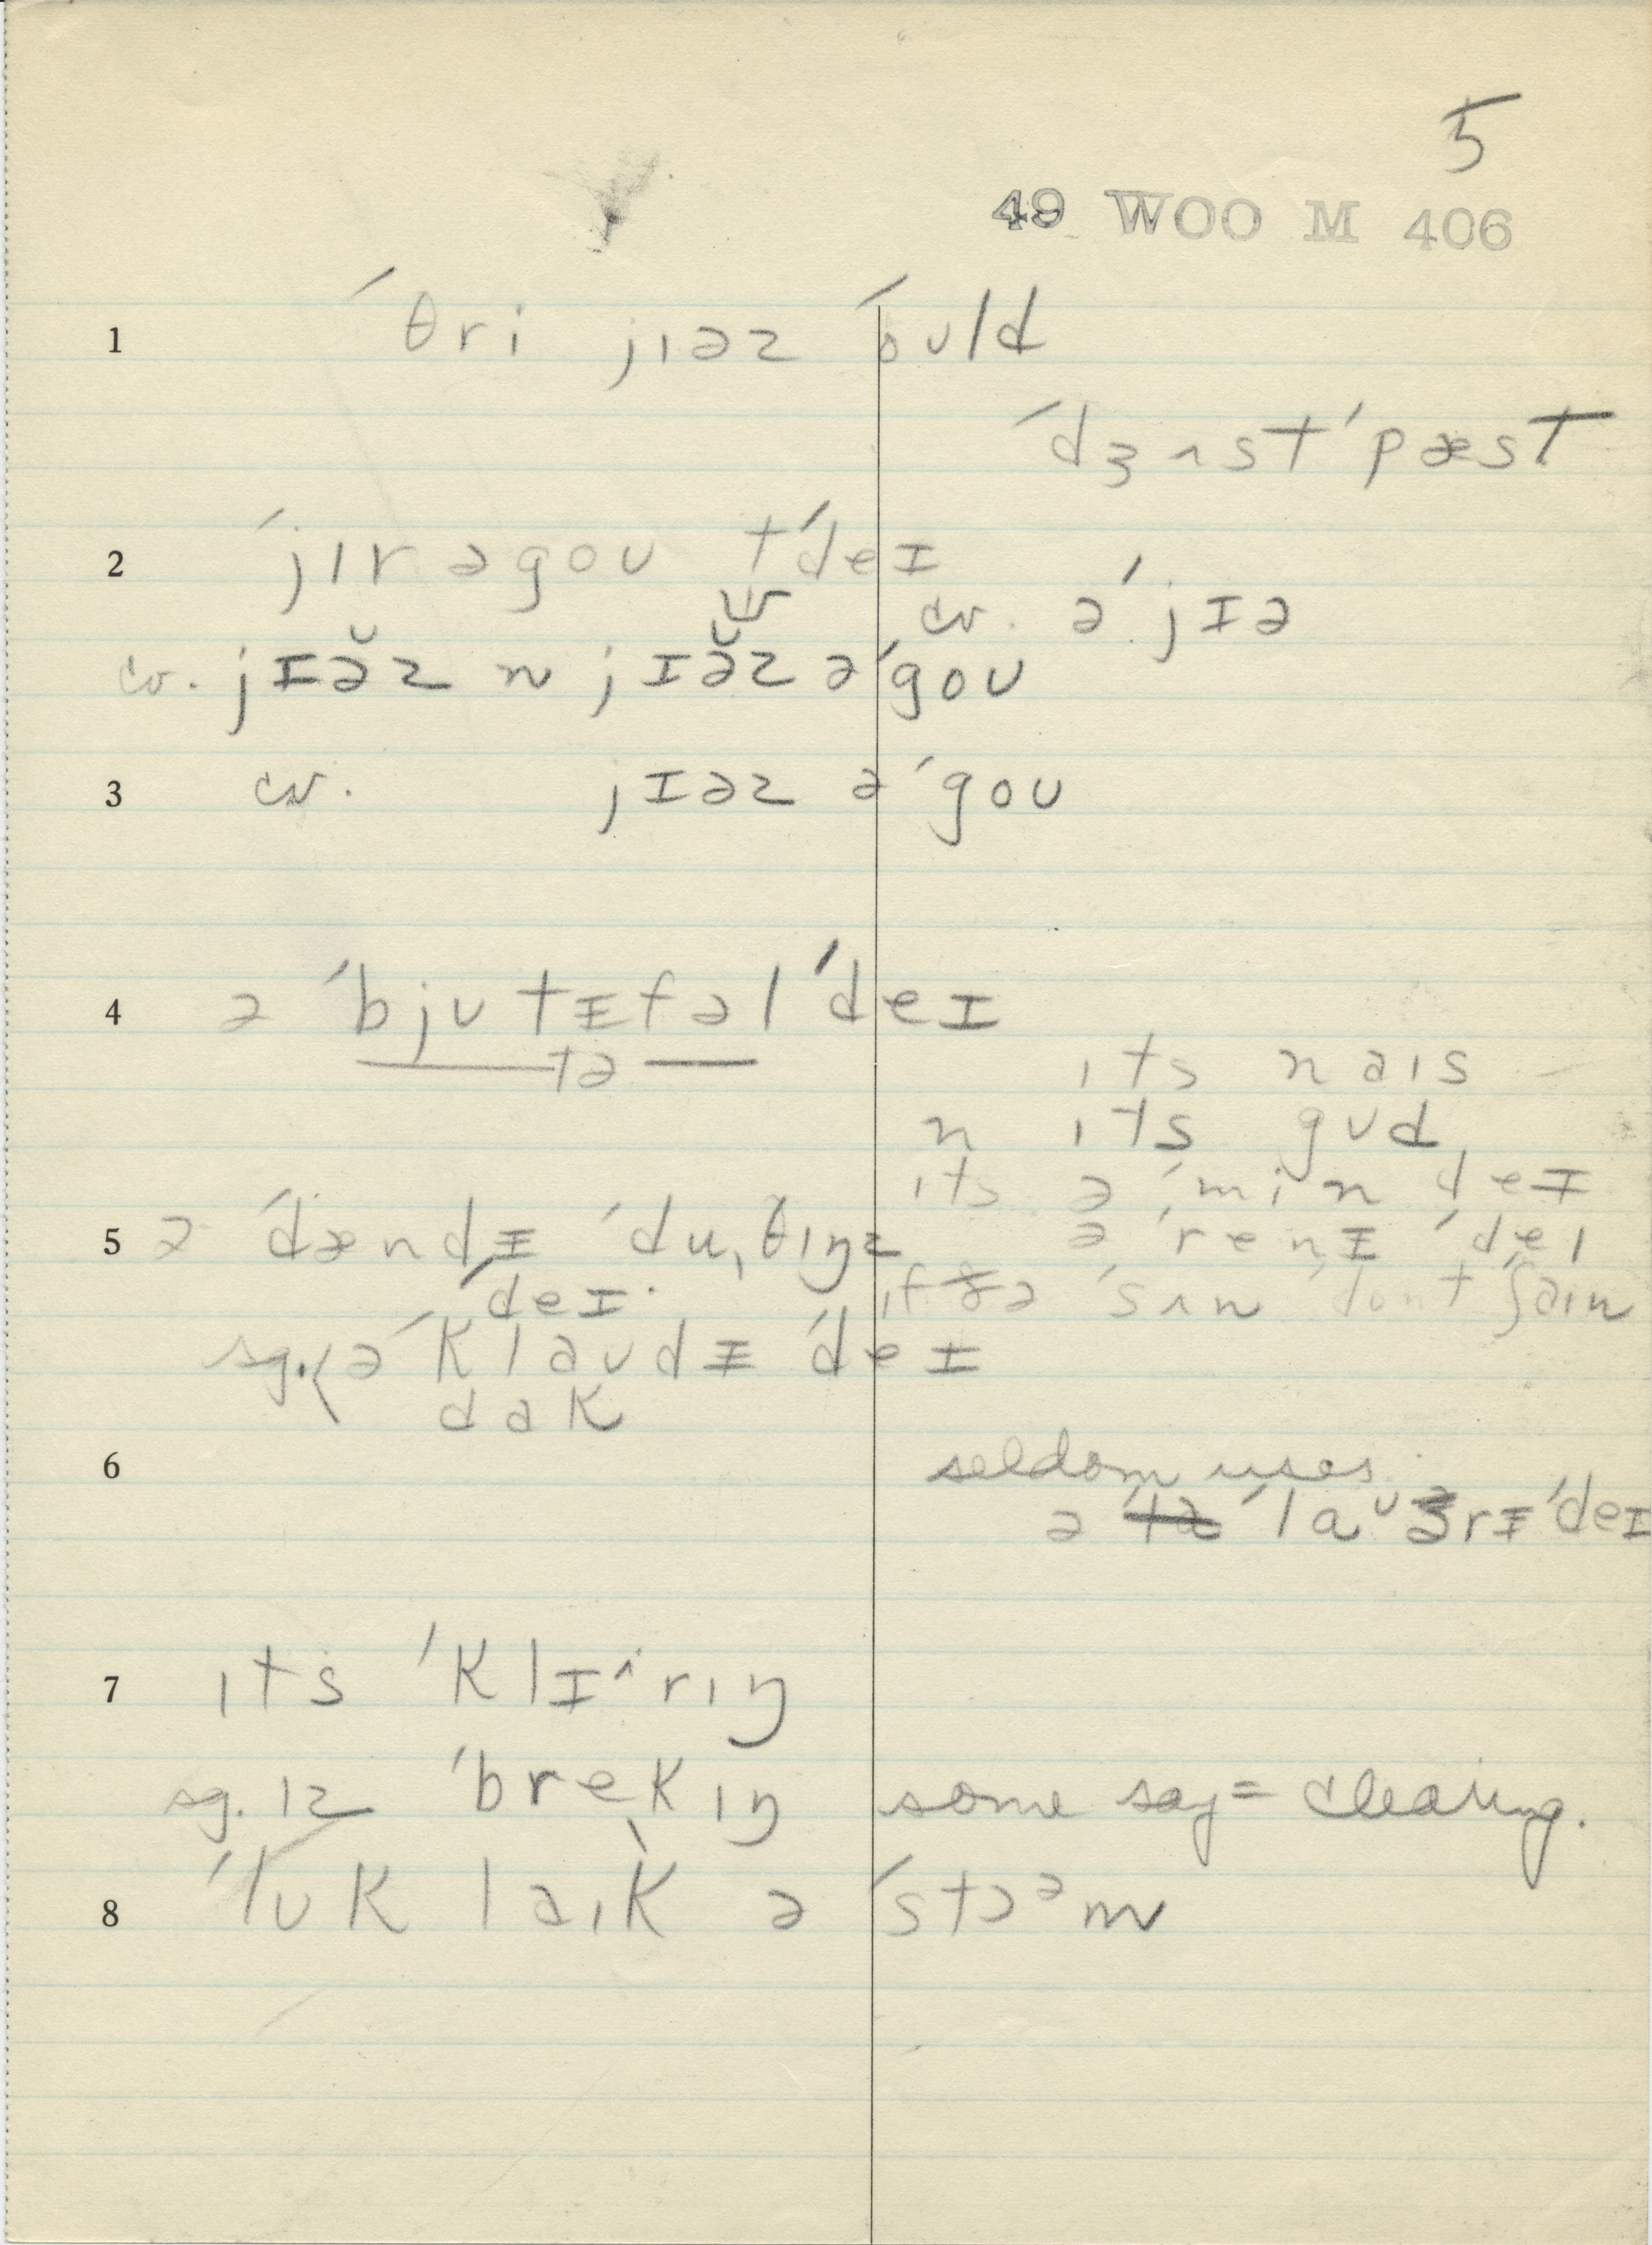 5
49 WOO M 406
1 ´θri jɪəz ´ould
´dʒʌst ´pæst
2 ´jɪr əgou t´deɪ
cv. ə´jɪə
cv. jɪə̆z n jɪə̆z ə´gou
3 cv. jɪəz ə´gou
4 ə ´bjutɪfəl ´deɪ
tə
ɪts nais
n ɪts gud
ɪts ə ´min deɪ
5 ə ´dændɪ ´du,θɪŋz
ə ´renɪ ´deɪ
´deɪ.
ɪf ðə ´sʌn dont ʃain
sg. ə ´klaudɪ ´deɪ
dak
6 seldom uses
ə ´lauərɪ ´deɪ
7 ɪts ´klɪ^rɪŋ
sg. ɪz ´brekɪŋ some say = clearing.
8 ´luk laik ə ´stɔəm